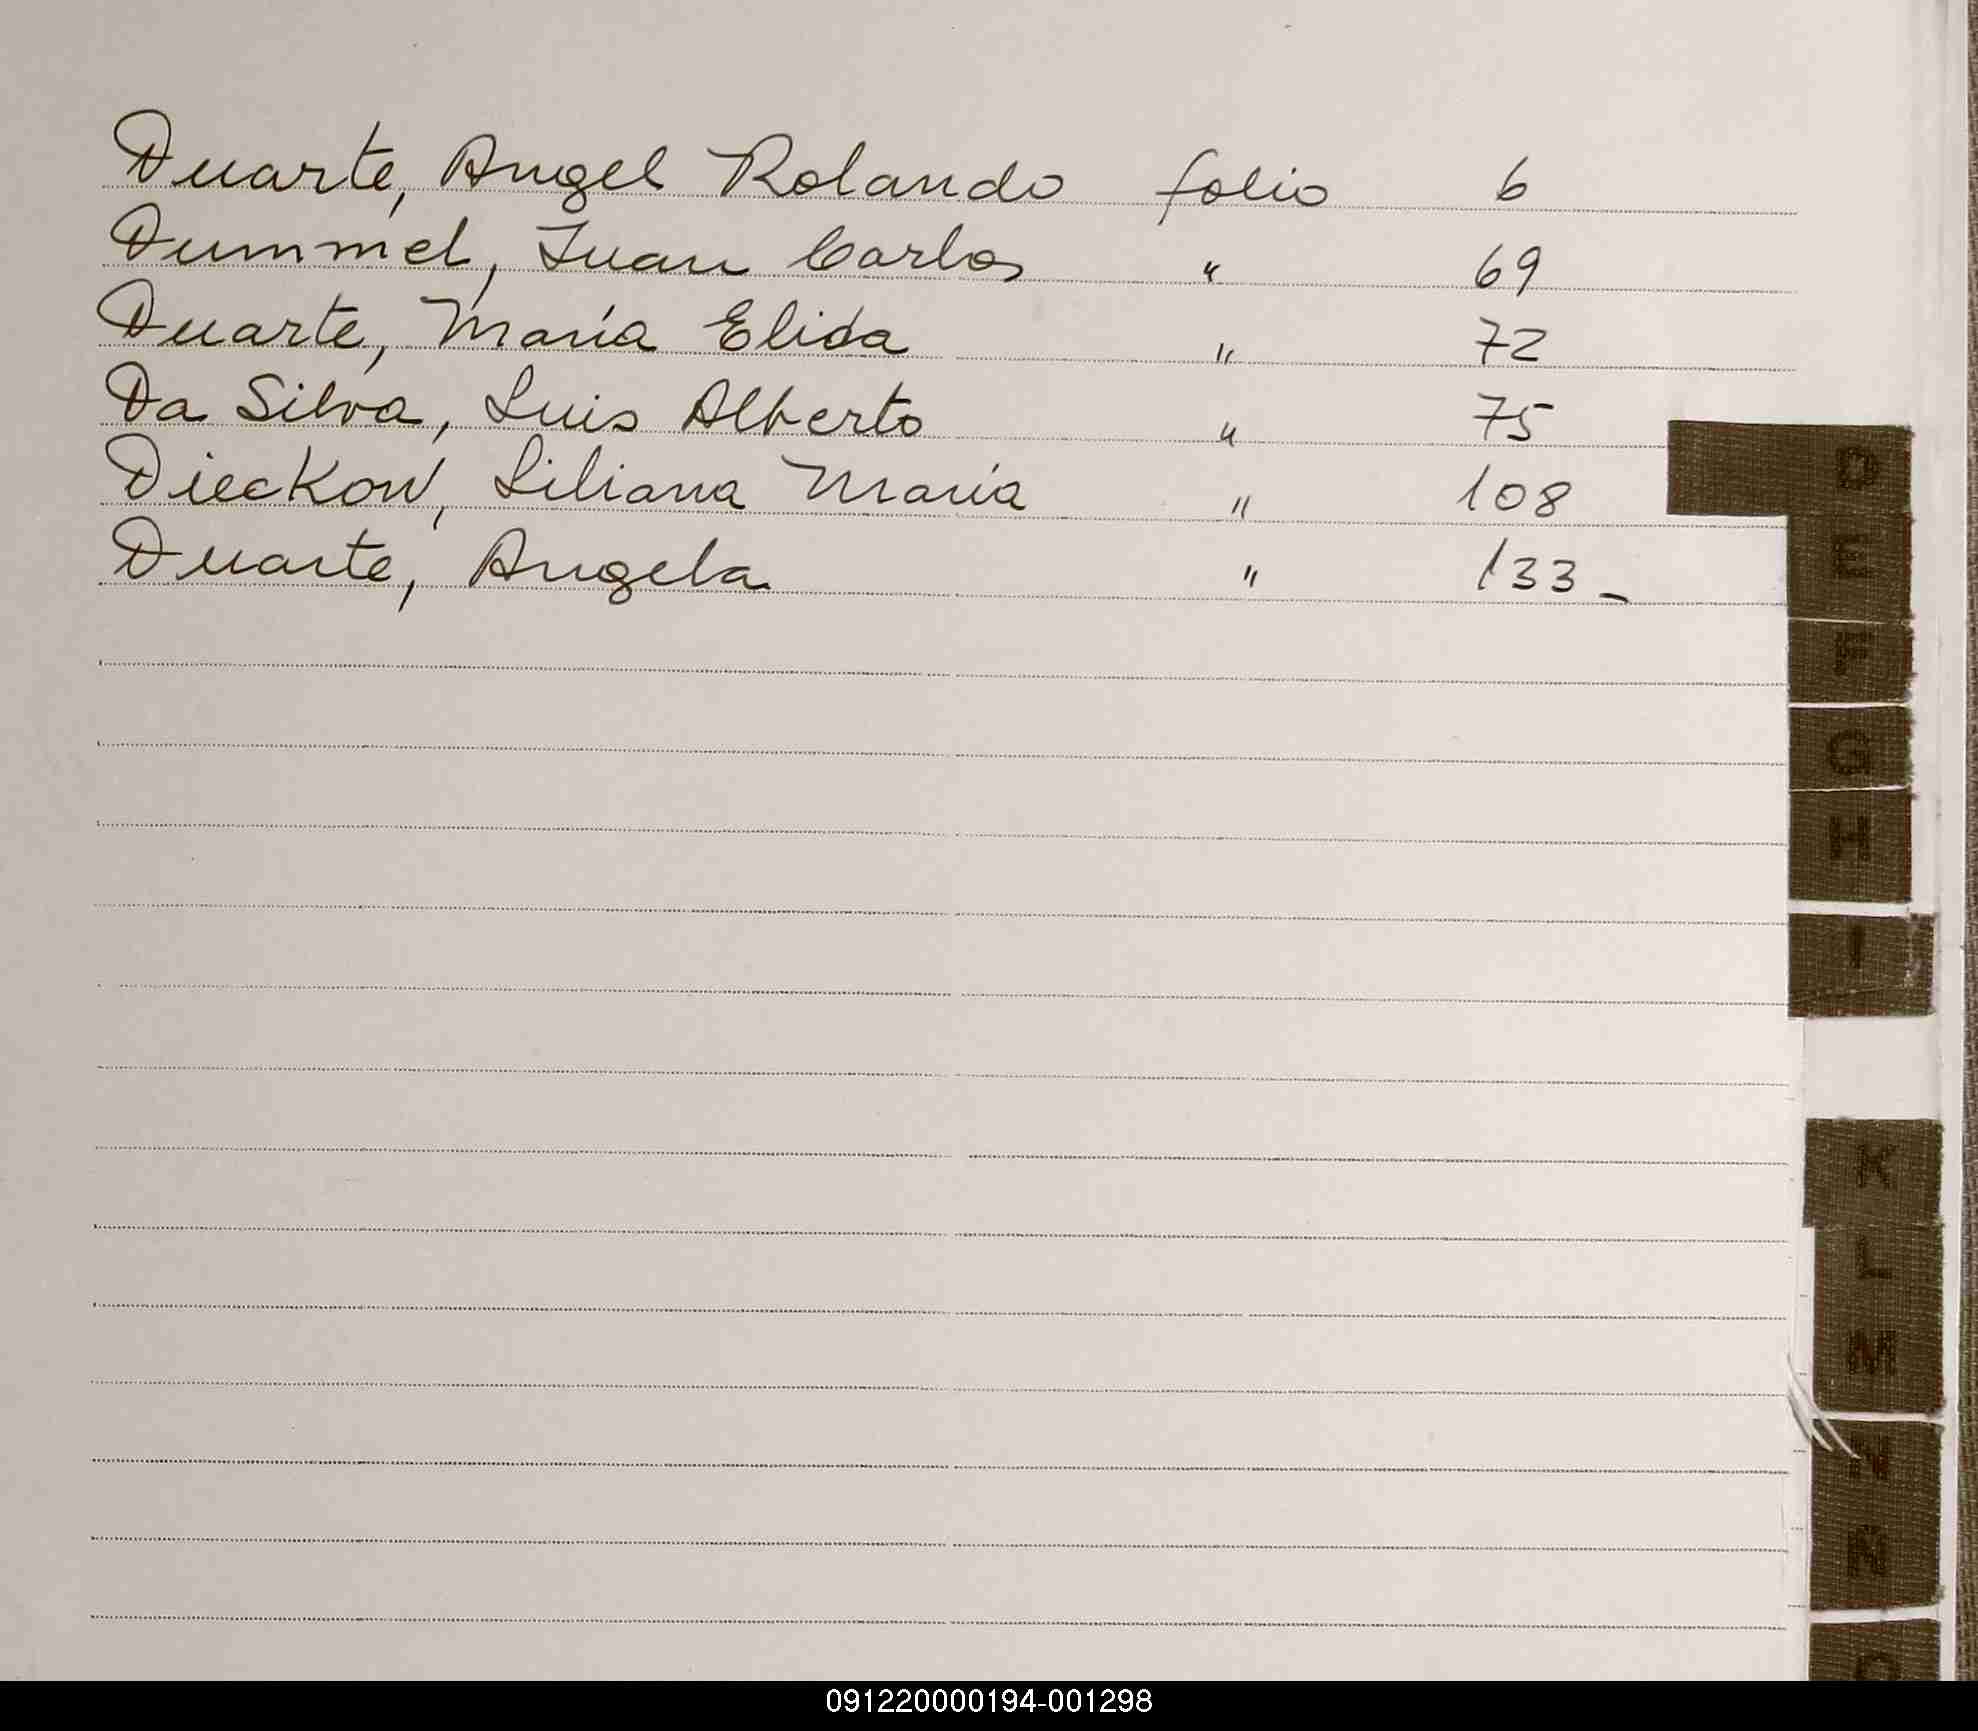 Duarte, Angel Rolando folio 6
Dummel, Juan Carlos " 69
Duarte, María Elida " 72
Da Silva, Luis Alberto " 75
Dieckow, Liliana María " 108
Duarte, Angela " 133_
D
E
F
G
H
I
K
L
M
N
Ñ
O
091220000194-001298